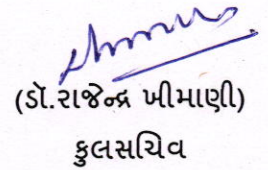 (ડૉ.રાજેન્દ્ર ખીમાણી)
કુલસચિવ